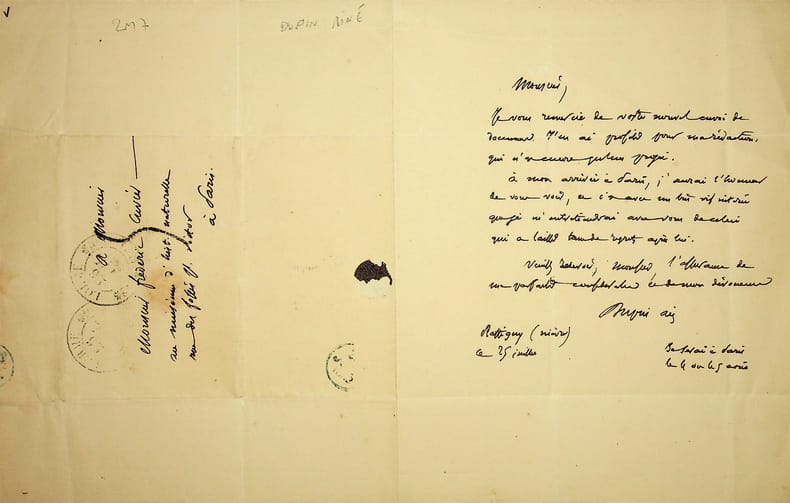 2M7
DUPIN AINÉ
à Monsieur
Monsieur frédéric Cuvier
au muséum d'hist. naturelle
rue des fossés St. Victor
à Paris.
Monsieur,
Je vous remercie de votre nouvel envoi de
documens. J'en ai profité pour ma rédaction,
qui n'est encore
à mon arrivée à Paris, j'aurai l'honneur
de vous voir, et c'est avec un bien vif intérêt
que je m'entretiendrai avec vous de celui
qui a laissé tant de regrets après lui.
Veuillez recevoir, Monsieur, l'assurance de
ma parfaite considération et de mon dévouement
Dupin aîné
(nièvre)
ce 25 juillet
Je serai à Paris
le 4 ou le 5 août